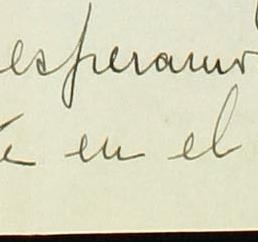 esperamo
é en el